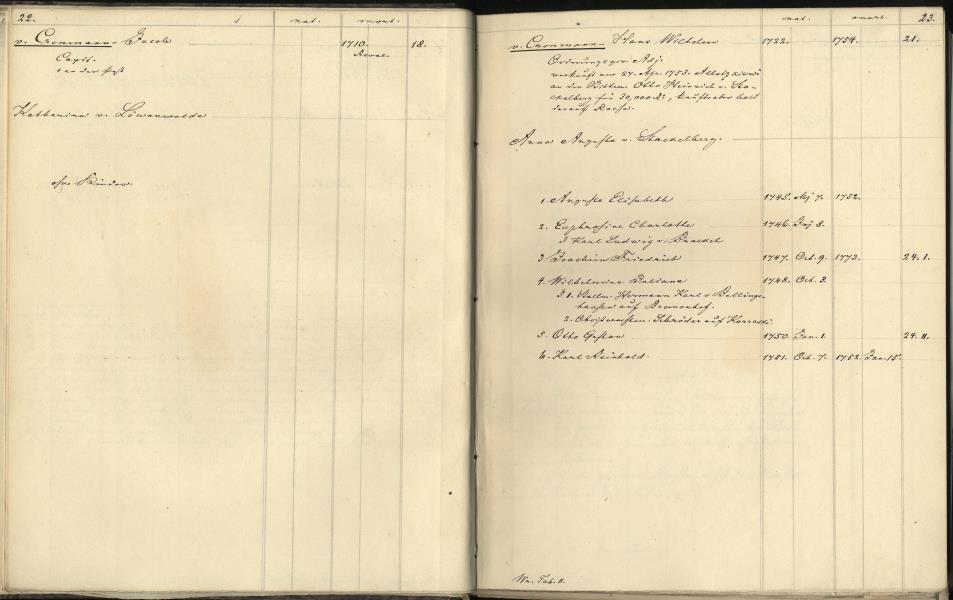 22. nat. mort.
v. Cronmann- Jacob 1710. 18.
Capit. Reval.
† an der Pest
Katharina v. Löwenwolde
ohne Kinder.
nat. mort. 23.
v. Cronmann- Hans Wilhelm 1722. 1754. 21.
Ordnungsger. Adj.
verkauft am 27. Apr. 1753.
an den Rittm. Otto Heinrich v. Sta-
ckelberg für 30,000 R, kauft aber bald
darauf
Anna Augusta v. Stackelberg.
1. Auguste Elisabeth 1745. Mj 7. 1752.
2. Euphrosine Charlotte 1746. 8.
Karl Ludwig v. Brackel
3. Joachim Friedrich 1747. Oct. 9. 1773. 24. I.
4. Wilhelmine Juliane 1748. Oct. 3
1. Hermann Karl v Bellings-
hausen auf
2. Schröder auf
5. Otto Gustav 1750. Jan. 1. 24. II.
6. Karl Reinhold. 1751. Oct. 7. 1752. Jan. 15.
Tab.